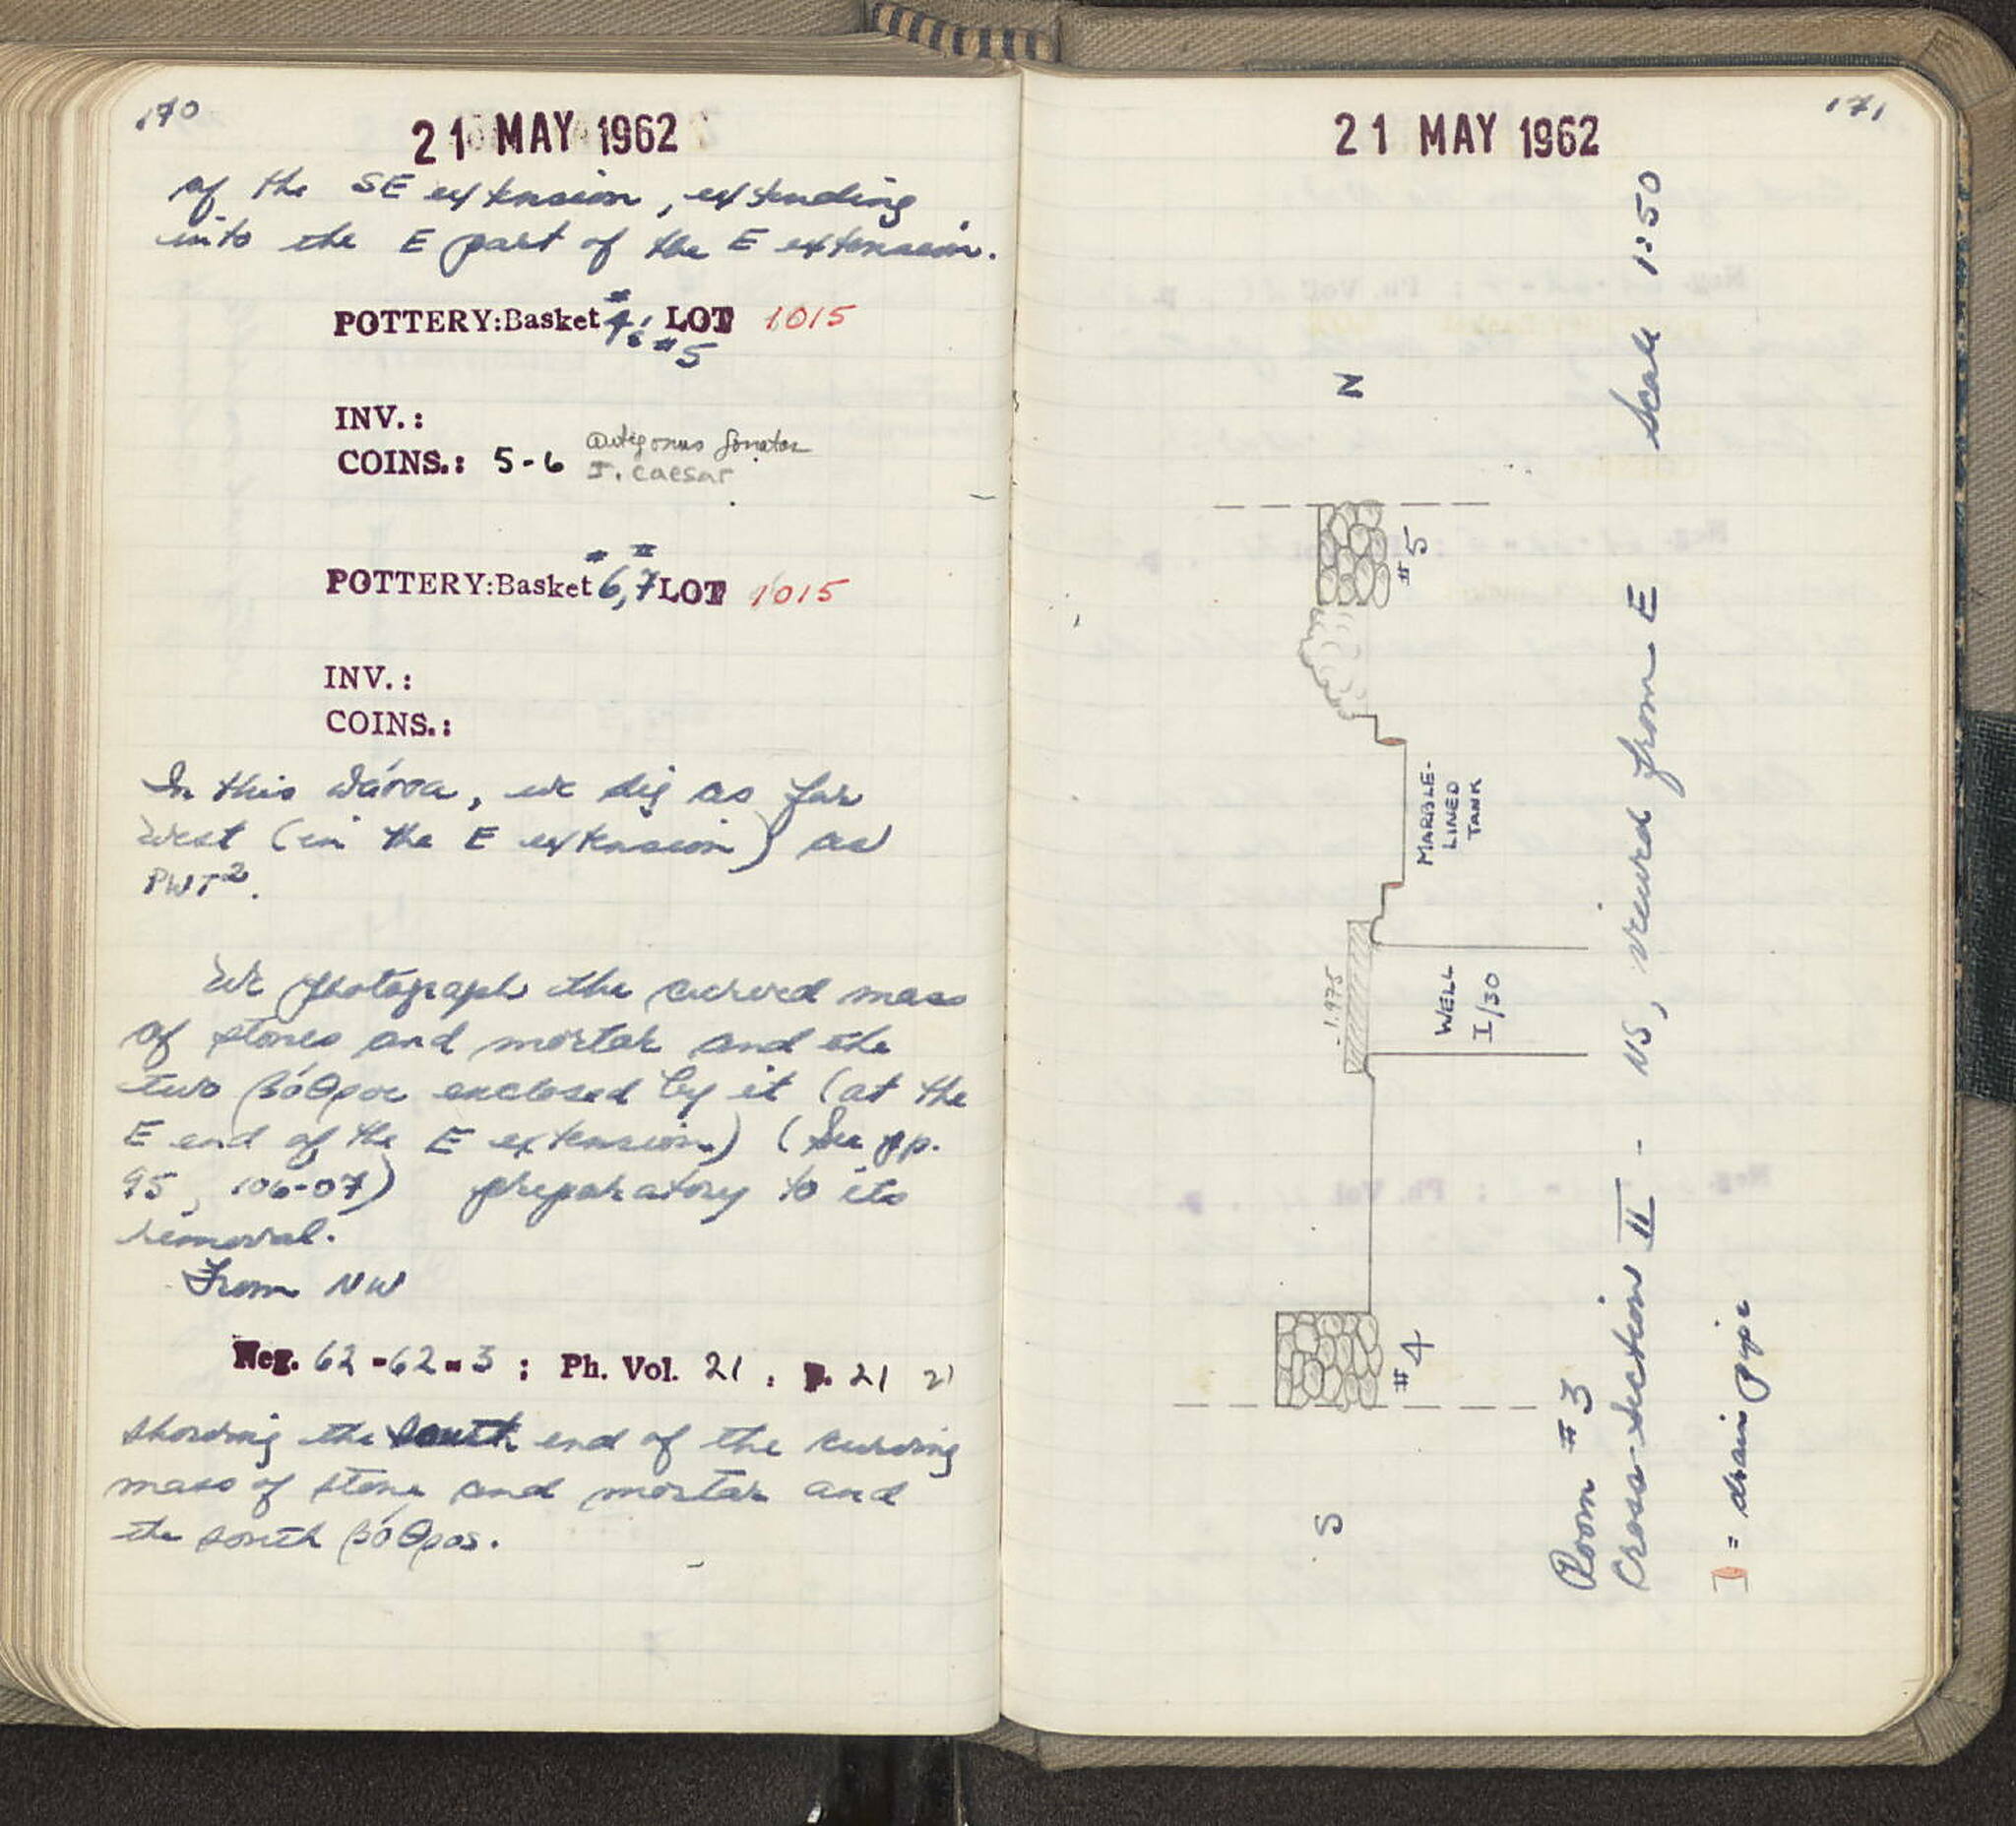 170
21 MAY 1962
of the SE extension, extending
into the E part of the E extension.
POTTERY:Basket #4; LOT 1015
#5
INV.:
COINS.: 5-6 Antigonus Gonatas
J. Caesar
POTTERY:Basket #6, #7 LOT 1015
INV.:
COINS.:
In this wárra, we dig as far
west (in the E extension) as
PWT².
We photograph the curved mass
of stones and mortar and the
two βόθροι enclosed by it (at the
E end of the E extension) (See pp.
95, 106-07) preparatory to its
removal.
From NW
Neg. 62-62-3 ; Ph. Vol. 21 , p. 21 21
showing the south end of the curving
mass of stone and mortar and
the south βόθρος.
171
21 MAY 1962
N
#5
MARBLE-
LINED
TANK
1.975
WELL
I/30
#4
S
Room #3
Cross-Section II - NS, viewed from E Scale 1:50
= drain pipe